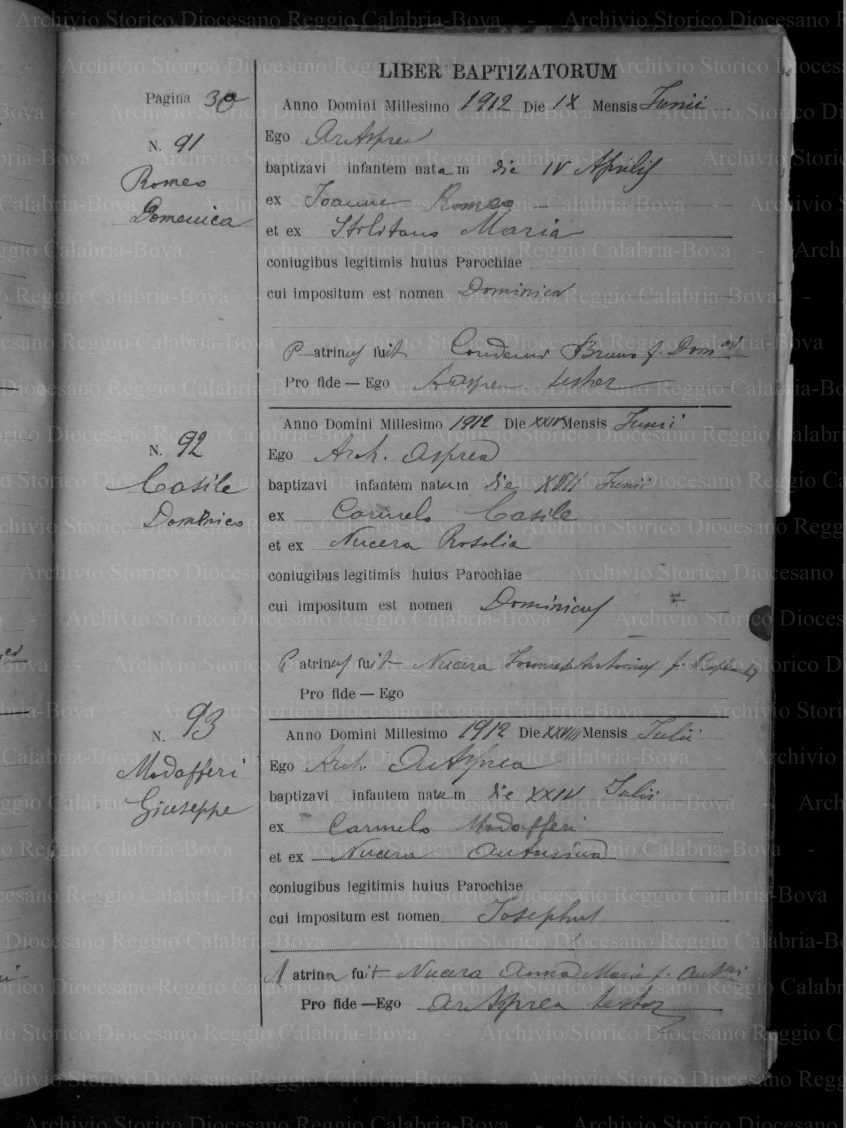 LIBER BAPTIZATORUM
Pagina 30
Anno Domini Millesimo 1912 Die IX Mensis Junii
N. 91
Ego Ar Asprea
Romeo
Domenica
baptizavi infantem natam die IV Aprilis
ex Joanne Romeo
et ex Maria
coniugibus legitimis huius Parochiae
cui impositum est nomen Dominica
Patrinus fuit Condemi Bruno f. Dom
Pro fide — Ego A Asprea testor
Anno Domini Millesimo 1912 Die XXIV Mensis Junii
N. 92
Ego Arch. Asprea
Casile
Domenico
baptizavi infantem natum die XVII Junii
ex Carmelo Casile
et ex Nucera Rosolia
coniugibus legitimis huius Parochiae
cui impositum est nomen Dominicus
Patrinus fuit Nucera f.
Pro fide — Ego
Anno Domini Millesimo 1912 Die XXVIII Mensis Julii
N. 93
Ego Arch. Ar Asprea
Modafferi
Giuseppe
baptizavi infantem natum die XXIV Julii
ex Carmelo Modafferi
et ex Nucera Antonina
coniugibus legitimis huius Parochiae
cui impositum est nomen Josephus
Matrina fuit Nucera Anna Maria f.
Pro fide —Ego Ar Asprea testor
Archivio Storico Diocesano Reggio Calabria-Bova